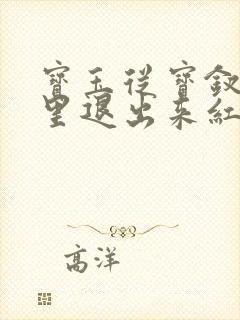 寶玉從寶釵
里退出來紅
高洋